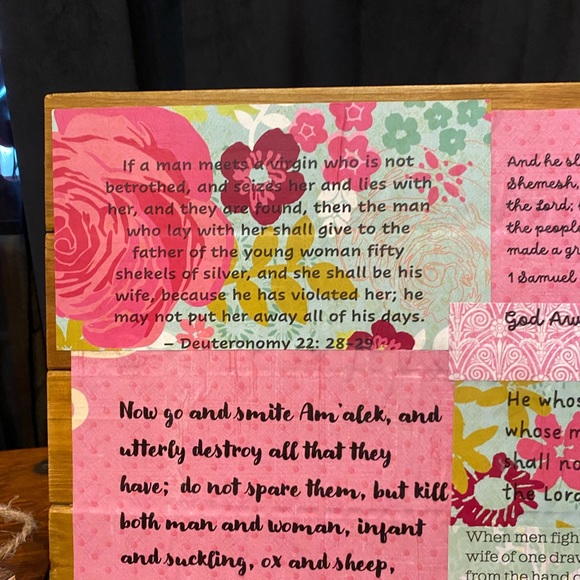 If a man meets a virgin who is not
betrothed, and seizes her and lies with
her, and they are found, then the man
who lay with her shall give to the
father of the young woman fifty
shekels of silver, and she shall be his
wife, because he has violated her; he
may not put her away all of his days.
– Deuteronomy 22: 28-29
Now go and smite Am'alek, and
utterly destroy all that they
have; do not spare them, but kill
both man and woman, infant
and suckling, ox and sheep,
And he sl
Shemesh,
the Lord;
the people
made a gr
1 Samuel
God Aw
He whos
whose m
shall no
the Lord
When men figh
wife of one draw
from the hand o